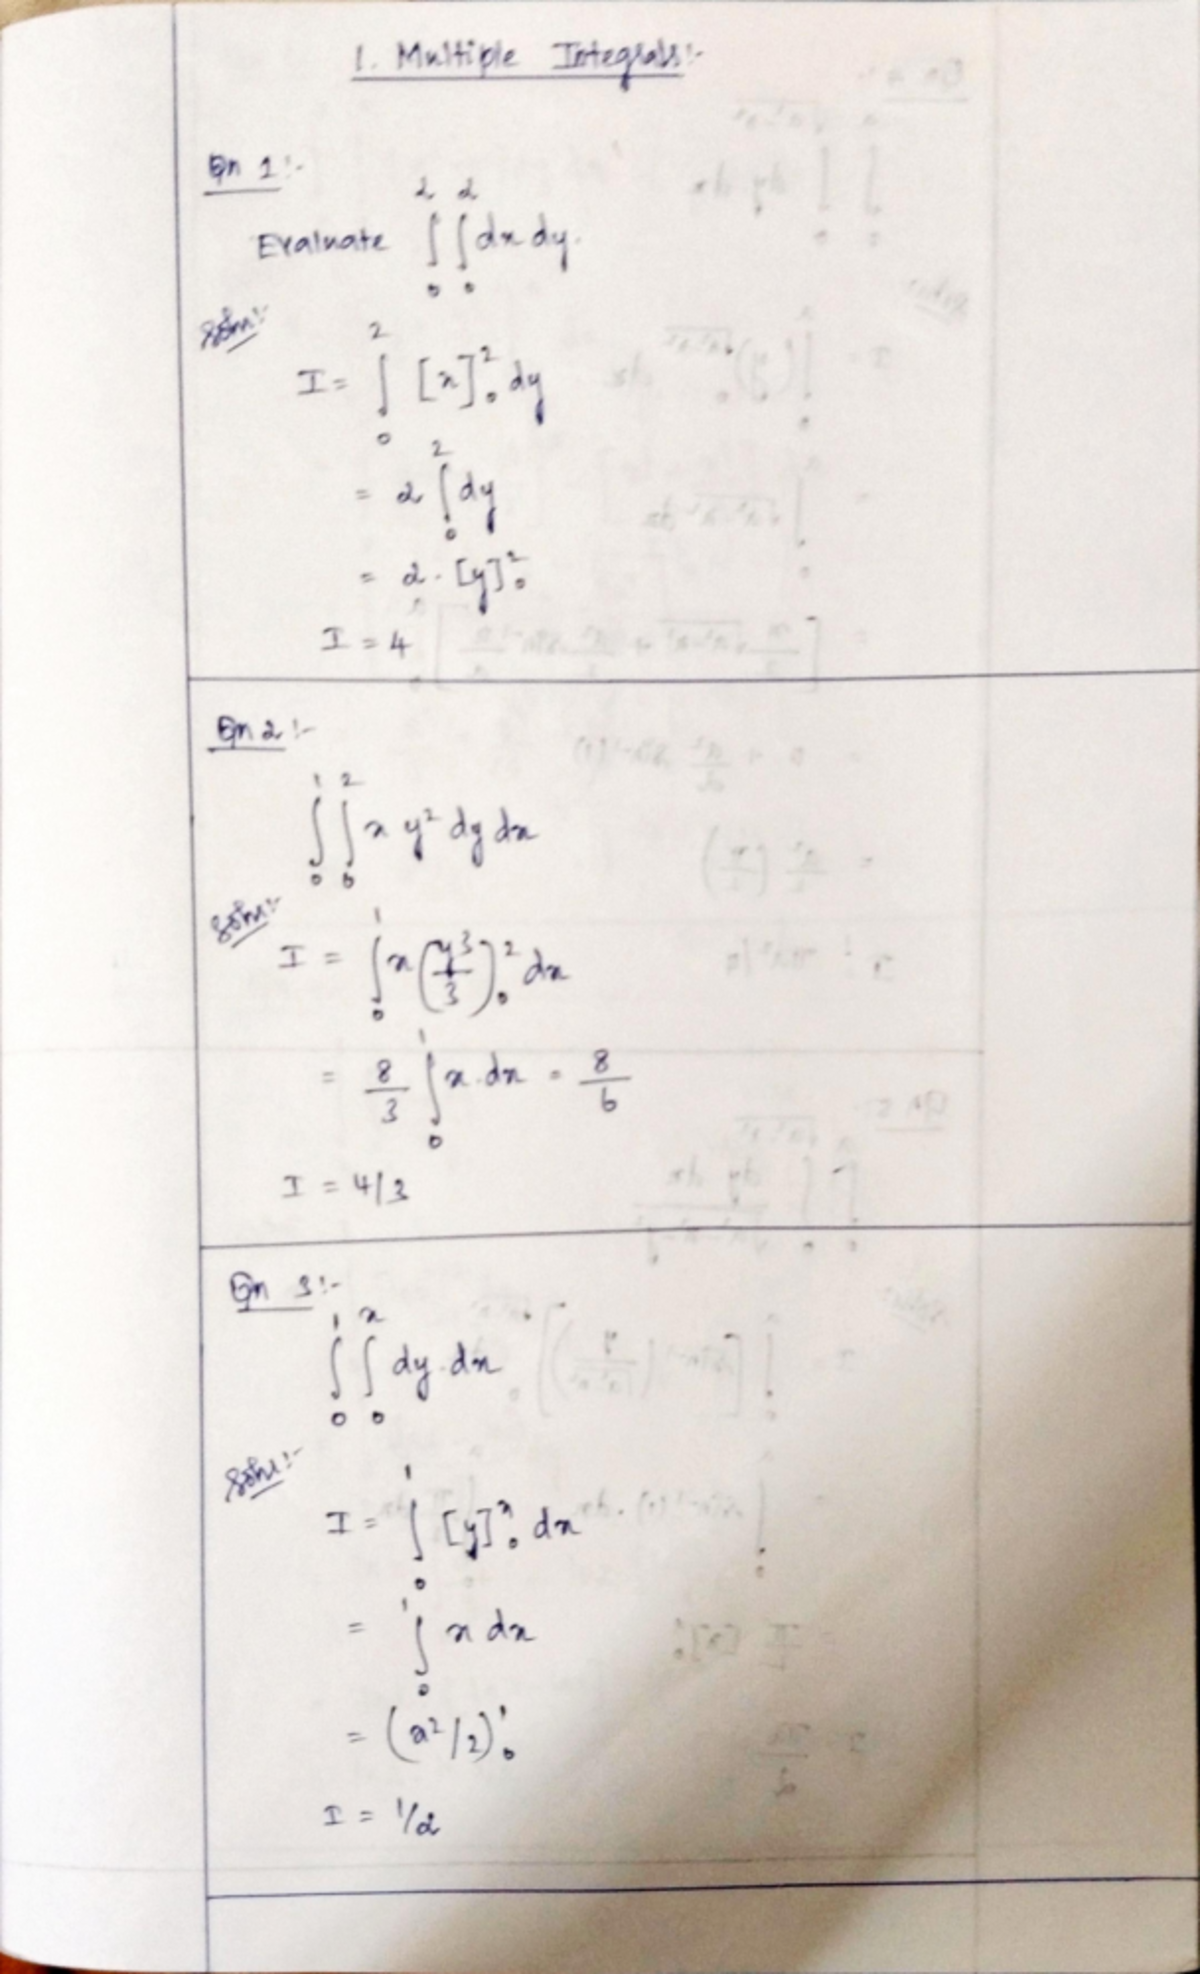 1. Multiple Integrals:-
Qn 1:-
Evaluate ∫₀² ∫₀² dx dy.
Soln:-
I = ∫₀² [x]₀² dy
= 2 ∫₀² dy
= 2 · [y]₀²
I = 4
Qn 2:-
∫₀¹ ∫₀² x y² dy dx
Soln:-
I = ∫₀¹ x (y³/3)₀² dx
= 8/3 ∫₀¹ x · dx = 8/6
I = 4/3
Qn 3:-
∫₀¹ ∫₀ˣ dy · dx
Soln:-
I = ∫₀¹ [y]₀ˣ dx
= ∫₀¹ x dx
= (x²/2)₀¹
I = 1/2